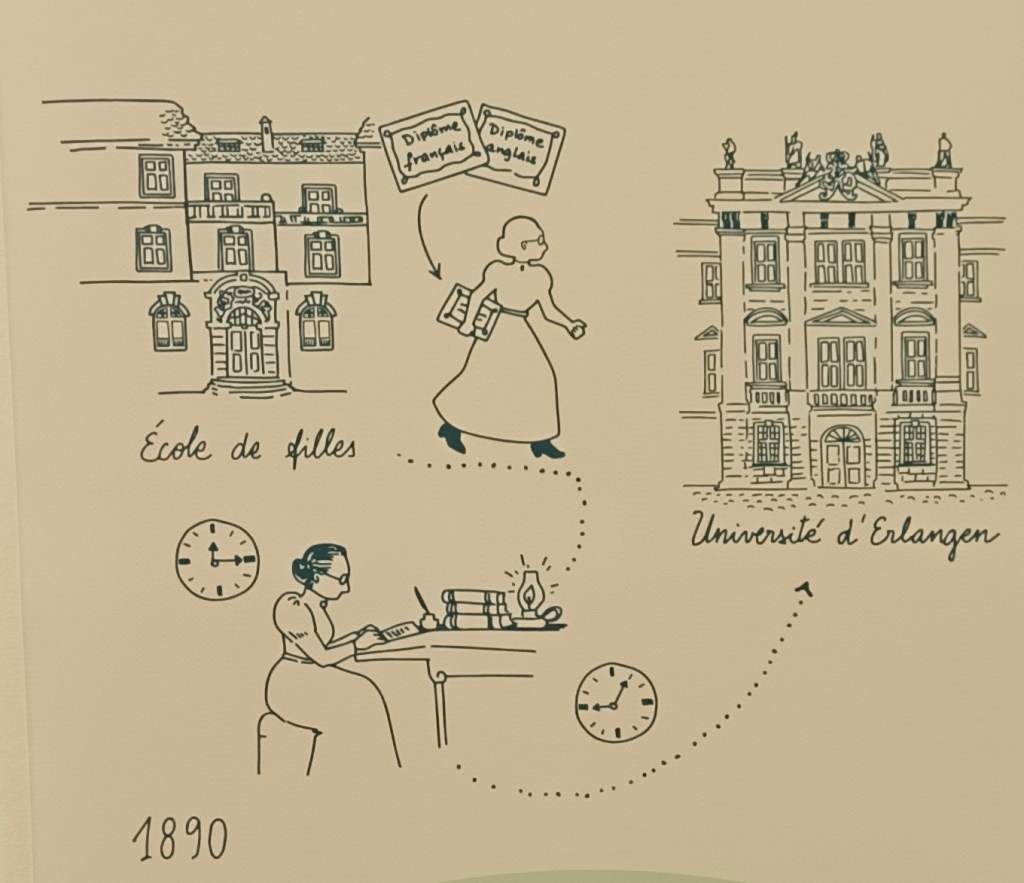 Diplôme
français
Diplôme
anglais
École de filles
Université d'Erlangen
1890